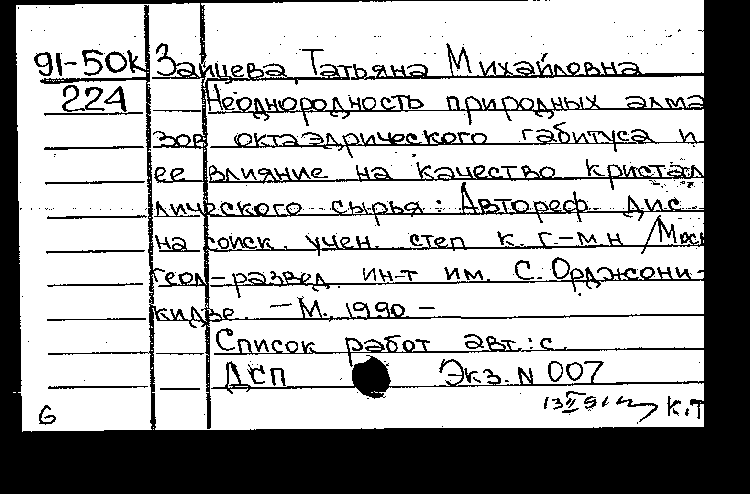 91-50к Зайцева, Татьяна Михайловна
224 Неоднородность природных алма
зов октаэдрического габитуса и
ее влияние на качество кристал
лического сырья: Автореф. дис
на соиск. учен. степ к. г.-м.н /Моск
геол-развед. ин-т им. С. Орджони-
кидзе. — М., 1990 —
Список работ авт.: с.
ДСП Экз. N 007
13 II 91 К.Т
6